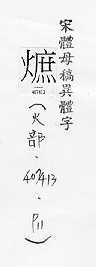 宋體母稿異體字
熫(火部.413.P11)